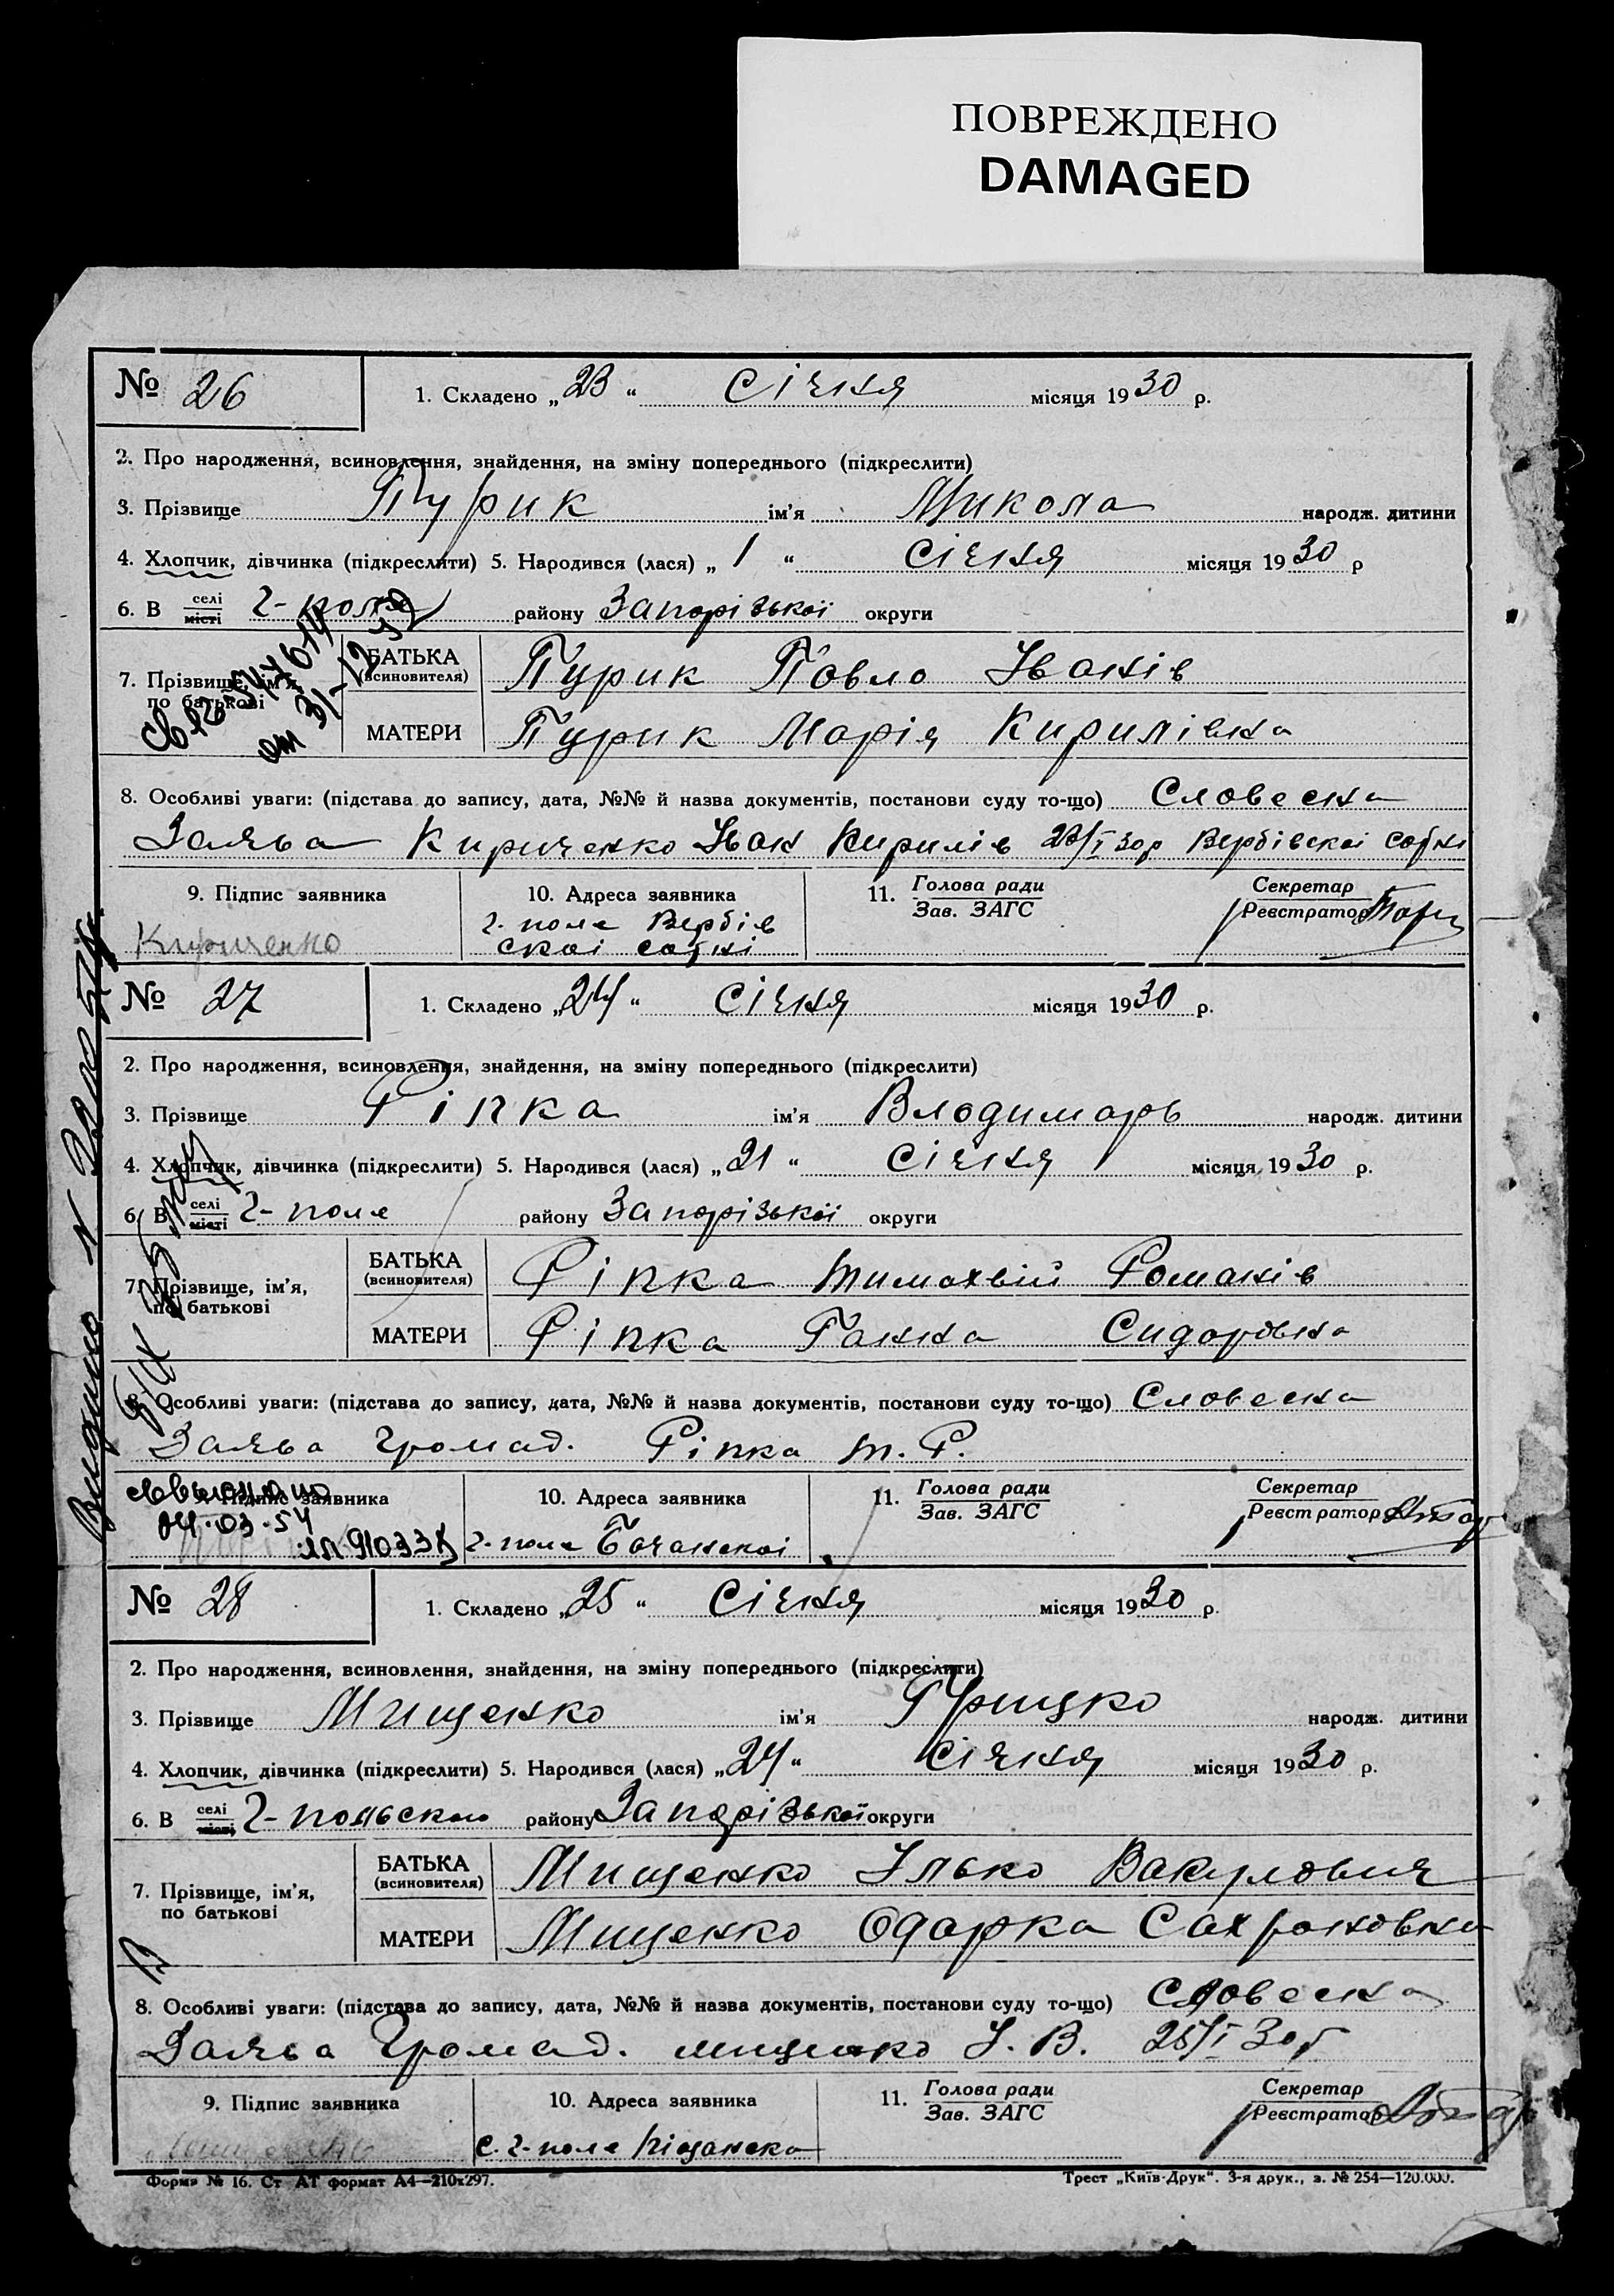 ПОВРЕЖДЕНО
DAMAGED
№ 26 1. Складено „23“ Січня місяця 1930 р.
2. Про народження, всиновлення, знайдення, на зміну попереднього (підкреслити)
3. Прізвище Пурик ім'я Микола народж. дитини
4. Хлопчик, дівчинка (підкреслити) 5. Народився (лася) „1“ Січня місяця 1930 р
6. В селі місті Г-поле району Запорізької округи
7. Прізвище, ім'я, по батькові
БАТЬКА (всиновителя) Пурик Повло Іванів
МАТЕРИ Пурик Марія Кирилівна
от 31-12
8. Особливі уваги: (підстава до запису, дата, №№ й назва документів, постанови суду то-що) Словесна
Заява Кириченко Іван Кирилів 23/I 30р Вербівскої сотні
9. Підпис заявника 10. Адреса заявника 11. Голова ради Зав. ЗАГС Секретар Реєстратор
Кириченко Г. поле Вербів
скої сотні
№ 27 1. Складено „24“ Січня місяця 1930 р.
2. Про народження, всиновлення, знайдення, на зміну попереднього (підкреслити)
3. Прізвище Ріпка ім'я Владимарь народж. дитини
4. Хлопчик, дівчинка (підкреслити) 5. Народився (лася) „21“ Січня місяця 1930 р.
6. В селі місті Г-поле району Запорізької округи
7. Прізвище, ім'я, по батькові
БАТЬКА (всиновителя) Ріпка Тимохвій Романів
МАТЕРИ Ріпка Ганна Сидоровна
8. Особливі уваги: (підстава до запису, дата, №№ й назва документів, постанови суду то-що) Словесна
Заява Громад. Ріпка Т. Р.
9. Підпис заявника 10. Адреса заявника 11. Голова ради Зав. ЗАГС Секретар Реєстратор
04.03.54
Г-поле Бочанскої
№ 28 1. Складено „25“ Січня місяця 1930 р.
2. Про народження, всиновлення, знайдення, на зміну попереднього (підкреслити)
3. Прізвище Мищенко ім'я Грицко народж. дитини
4. Хлопчик, дівчинка (підкреслити) 5. Народився (лася) „24“ Січня місяця 1930 р.
6. В селі місті Г-польского району Запорізької округи
7. Прізвище, ім'я, по батькові
БАТЬКА (всиновителя) Мищенко Ілько Вакулович
МАТЕРИ Мищенко Одарка Сахроновна
8. Особливі уваги: (підстава до запису, дата, №№ й назва документів, постанови суду то-що) Словесна
Заява Громад. Мищенко І. В. 25/I 30р
9. Підпис заявника 10. Адреса заявника 11. Голова ради Зав. ЗАГС Секретар Реєстратор
с. Г-поле Піщанска
Форма № 16. Ст АТ формат А4—210х297. Трест „Київ-Друк“. 3-я друк., з. № 254—120.000.